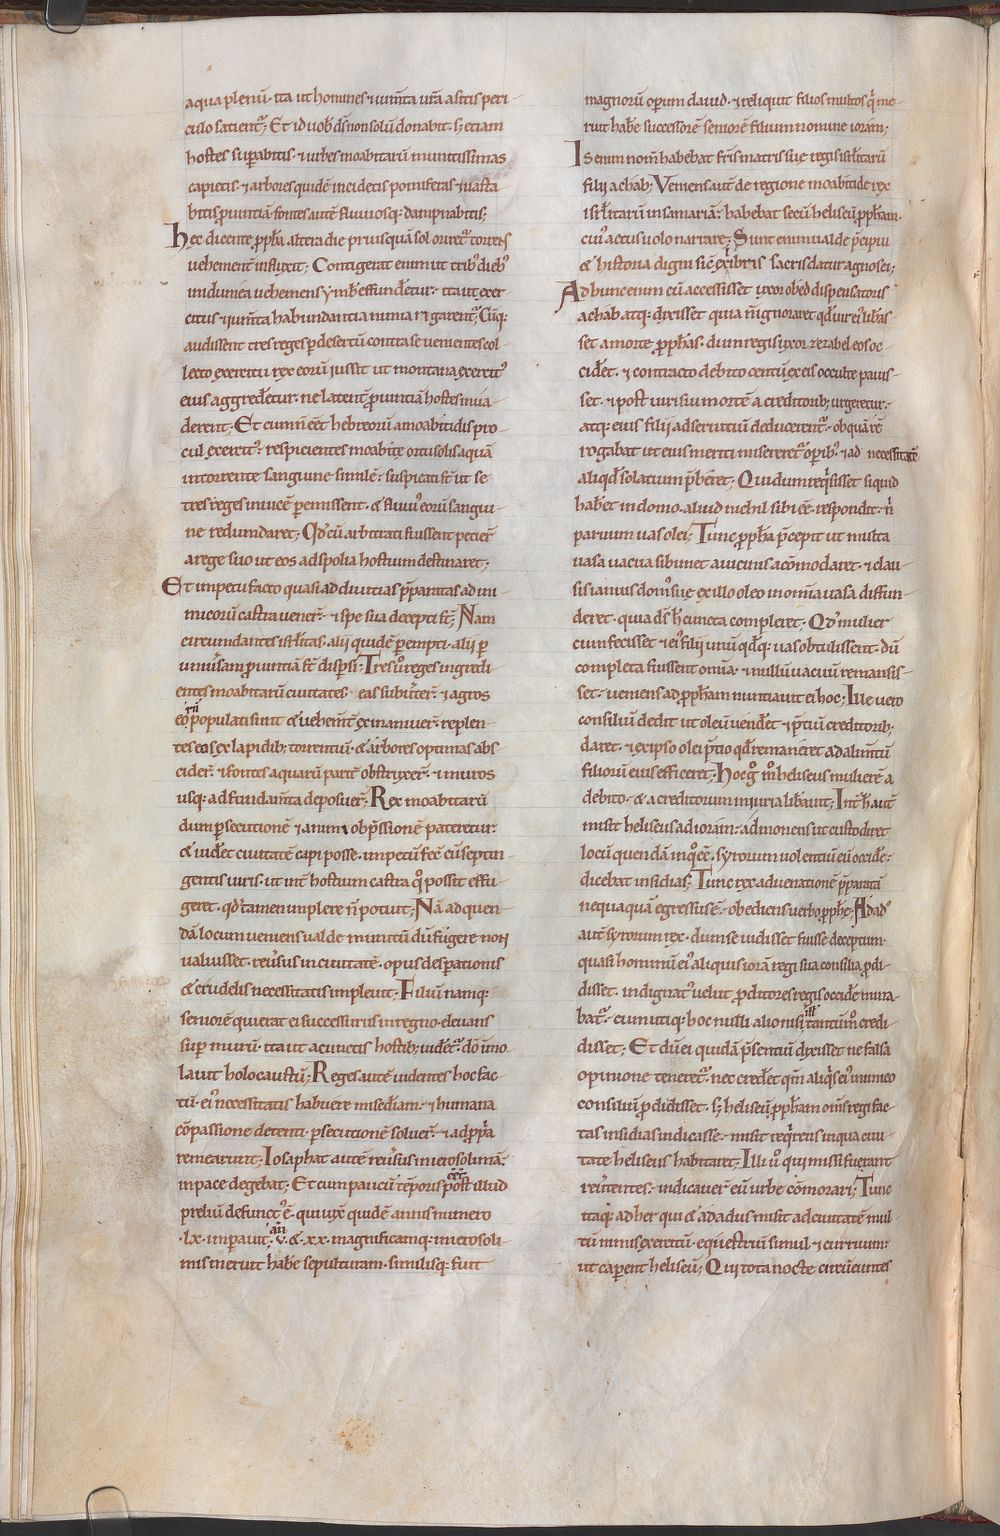 aqua plenū· ita ut homines· ⁊ iumta ura a sitis peri-
culo satient᷑; Et id uob̄ ds̄ non solū donabit· s; etiam
hostes suꝑabitis· ⁊ urbes moabitarū munitissimas
capietis· ⁊ arbores quidē incidetis pomiferas· ⁊ uasta-
bitis ꝓuintiā· fontes autē fluuiosq; dampnabitis;
Hęc dicente ꝓph̄a altera die priusquā sol oriret᷑ torrens
uehement̄ influxit; Contigerat enim ut trib; dieb;
in idumea uehemens ymb̄ effund̄etur· ita ut exer-
citus ⁊ iumta habundantia nimia rigarent᷑; Cūq;
audissent tres reges ꝑ desertū contra se uenientes col-
lecto exercitu rex eorū iussit ut montana exercit᷒
eius aggred̄etur· ne latent̄ ꝓuintiā hostes inua-
derent; Et cum n̄ eēt hebreorū a moabitidis pro-
cul exercit᷒· respicientes moabitę ortu solis aquā
in torrente sanguine similē· suspicati st̄ ut se
tres reges inuicē ꝑemissent· & fluui᷒ eorū sangui-
ne redundaret; Qd̄ cū arbitrati fuissent petier̄
a rege suo ut eos ad spolia hostium destinaret;
Et impetu facto quasi ad diuitias p̄paratas ad ini-
micorū castra uener̄· ⁊ spe sua decepti st̄; Nam
circumdantes isrl̄itas· alii quidē ꝑempti· alii ꝑ
uniuersam ꝓuintiā st̄ disꝑsi; Tres ů reges ingredi-
entes moabitarū ciuitates· eas subuerter̄· ⁊ agros
eorū populati sunt & uehement̄ exinaniuer̄· replen-
tes eos ex lapidib; torrentiū· & arbores optimas abs-
cider̄· ⁊ fontes aquarū parit̄ obstruxer̄· ⁊ muros
usq; ad fundam̄ta deposuer̄; Rex moabitarū
dum ꝑsecutionē ⁊ animi obp̄ssionē pateretur·
& uid̄et ciuitatē capi posse· impetū fecit cū septin-
gentis uiris· ut int̄ hostium castra quo possit effu-
geret· qd̄ tamen implere n̄ potuit; Nā ad quen-
dā locum ueniens ualde munitū dū fugere non
ualuisset· reuersus in ciuitatē· opus desꝑationis
& crudelis necessitatis impleuit; Filiū namq;
seniorē qui erat ei successurus in regno· eleuans
suꝑ murū· ita ut a cunctis hostib; uid̄et᷑· dō imo-
lauit holocaustū; Reges autē uidentes hoc fac-
tū· ei᷒ necessitatis habuere misc̄diam· ⁊ humana
cōpassione detenti· ꝑsecutionē soluer̄· ⁊ ad ꝓpria
remearunt; Iosaphat autē reuersus in ierosolimā·
in pace degebat; Et cum paucū tēporis post illud
preliū defunct᷒ ē· qui uixit quidē annis numero
·lx· imꝑauit· ann̄ ·v· & ·xx· magnificamq; in ierosoli-
mis meruit hab̄e sepulturam· similisq; fuit
magnorū oꝑum dauid· ⁊ reliquit filios multos qͥ me-
ruit hab̄e successorē seniorē filium nomine iorām;
Is enim nom̄ habebat fr̄is matris suę regis isrl̄itarū
filii achab; Veniens autē de regione moabitide rex
isrl̄itarū in samariā· habebat secū heliseū ꝓph̄am·
cui᷒ actus uolo narrare; Sunt enim ualde p̄cipui
& historia digni sicē ex libris sacris datur agnosci;
Ad hunc enim cū accessisset uxor obed dispensatoris
achab atq; dixisset quia n̄ ignoraret qd̄ uir ei᷒ libas-
set a morte ꝓph̄as· dum regis uxor zezabel eos oc-
cid̄et· ⁊ contracto debito centū ex eis occulte pauis-
set· ⁊ post uiri sui mortē a creditorib; urgeretur·
atq; eius filii ad seruitiū deducerent᷑· ob quā rē
rogabat ut eius meriti misereret᷑ oꝑib;· ⁊ ad necessitatē
aliqd̄ solatium p̄beret; Qui dum reqͥsisset siquid
hab̄et in domo· aliud nichil sibi eē respondit· nͥ
paruum uas olei; Tunc ꝓph̄a p̄cepit ut multa
uasa uacua sibimet a uicinis acōmodaret· ⁊ clau-
sis ianuis dom᷒ suę ex illo oleo in omnia uasa diffun-
deret· quia ds̄ h̄ cuncta compleret; Qd̄ mulier
cum fecisset ⁊ ei᷒ filii unū qdq; uas obtulissent· dū
completa fuissent omīa· ⁊ nullū uacuū remansis-
set· ueniens ad ꝓph̄am nuntiauit ei hoc; Ille uero
consiliū dedit ut oleū uend̄et ⁊ p̄tiū creditorib;
daret· ⁊ ex ipso olei p̄tio qd̄ remaneret ad alim̄tū
filiorū eius efficeret; Hoc g̊ m̊ heliseus mulierē a
debito· & a creditorum iniuria liƀauit; Int̄ h̄ aut̄
misit heliseus ad iorām· admonens ut custodiret
locū quendā inq̊ cē· syrorum uolentiū eū occide·
dicebat insidias; Tunc rex ad uenationē p̄paratā
nequaquā egressus ē· obediens uerbo ꝓph̄ę; Adad᷒
aut̄ syrorum rex· dum se uidisset fuisse deceptum·
quasi hominū ei᷒ aliquis iorā regi sua consilia ꝓdi-
disset· indignat᷒ uelut ꝓditores regis occid̄e mina-
bat᷑· cum utiq; hoc nulli alio nisi illi tantūm̊ credi-
disset; Et dū ei quidā p̄sentiū dixisset ne falsa
opinione teneret᷑· nec cred̄et qm̄ aliqͥs ei᷒ inimico
consiliū ꝓdidisset· s; heliseū ꝓph̄am om̄s regi fac-
tas insidias indicasse· misit reqͥrens in qua ciui-
tate heliseus habitaret; Illi ů qui missi fuerant
reuertentes· indicauer̄ eū urbe cōmorari; Tunc
itaq; adher qui & adadus misit ad ciuitatē mul-
tū nimis exercitū· equestriū simul ⁊ curruum·
ut caꝑent heliseū; Qui tota nocte circūeuntes